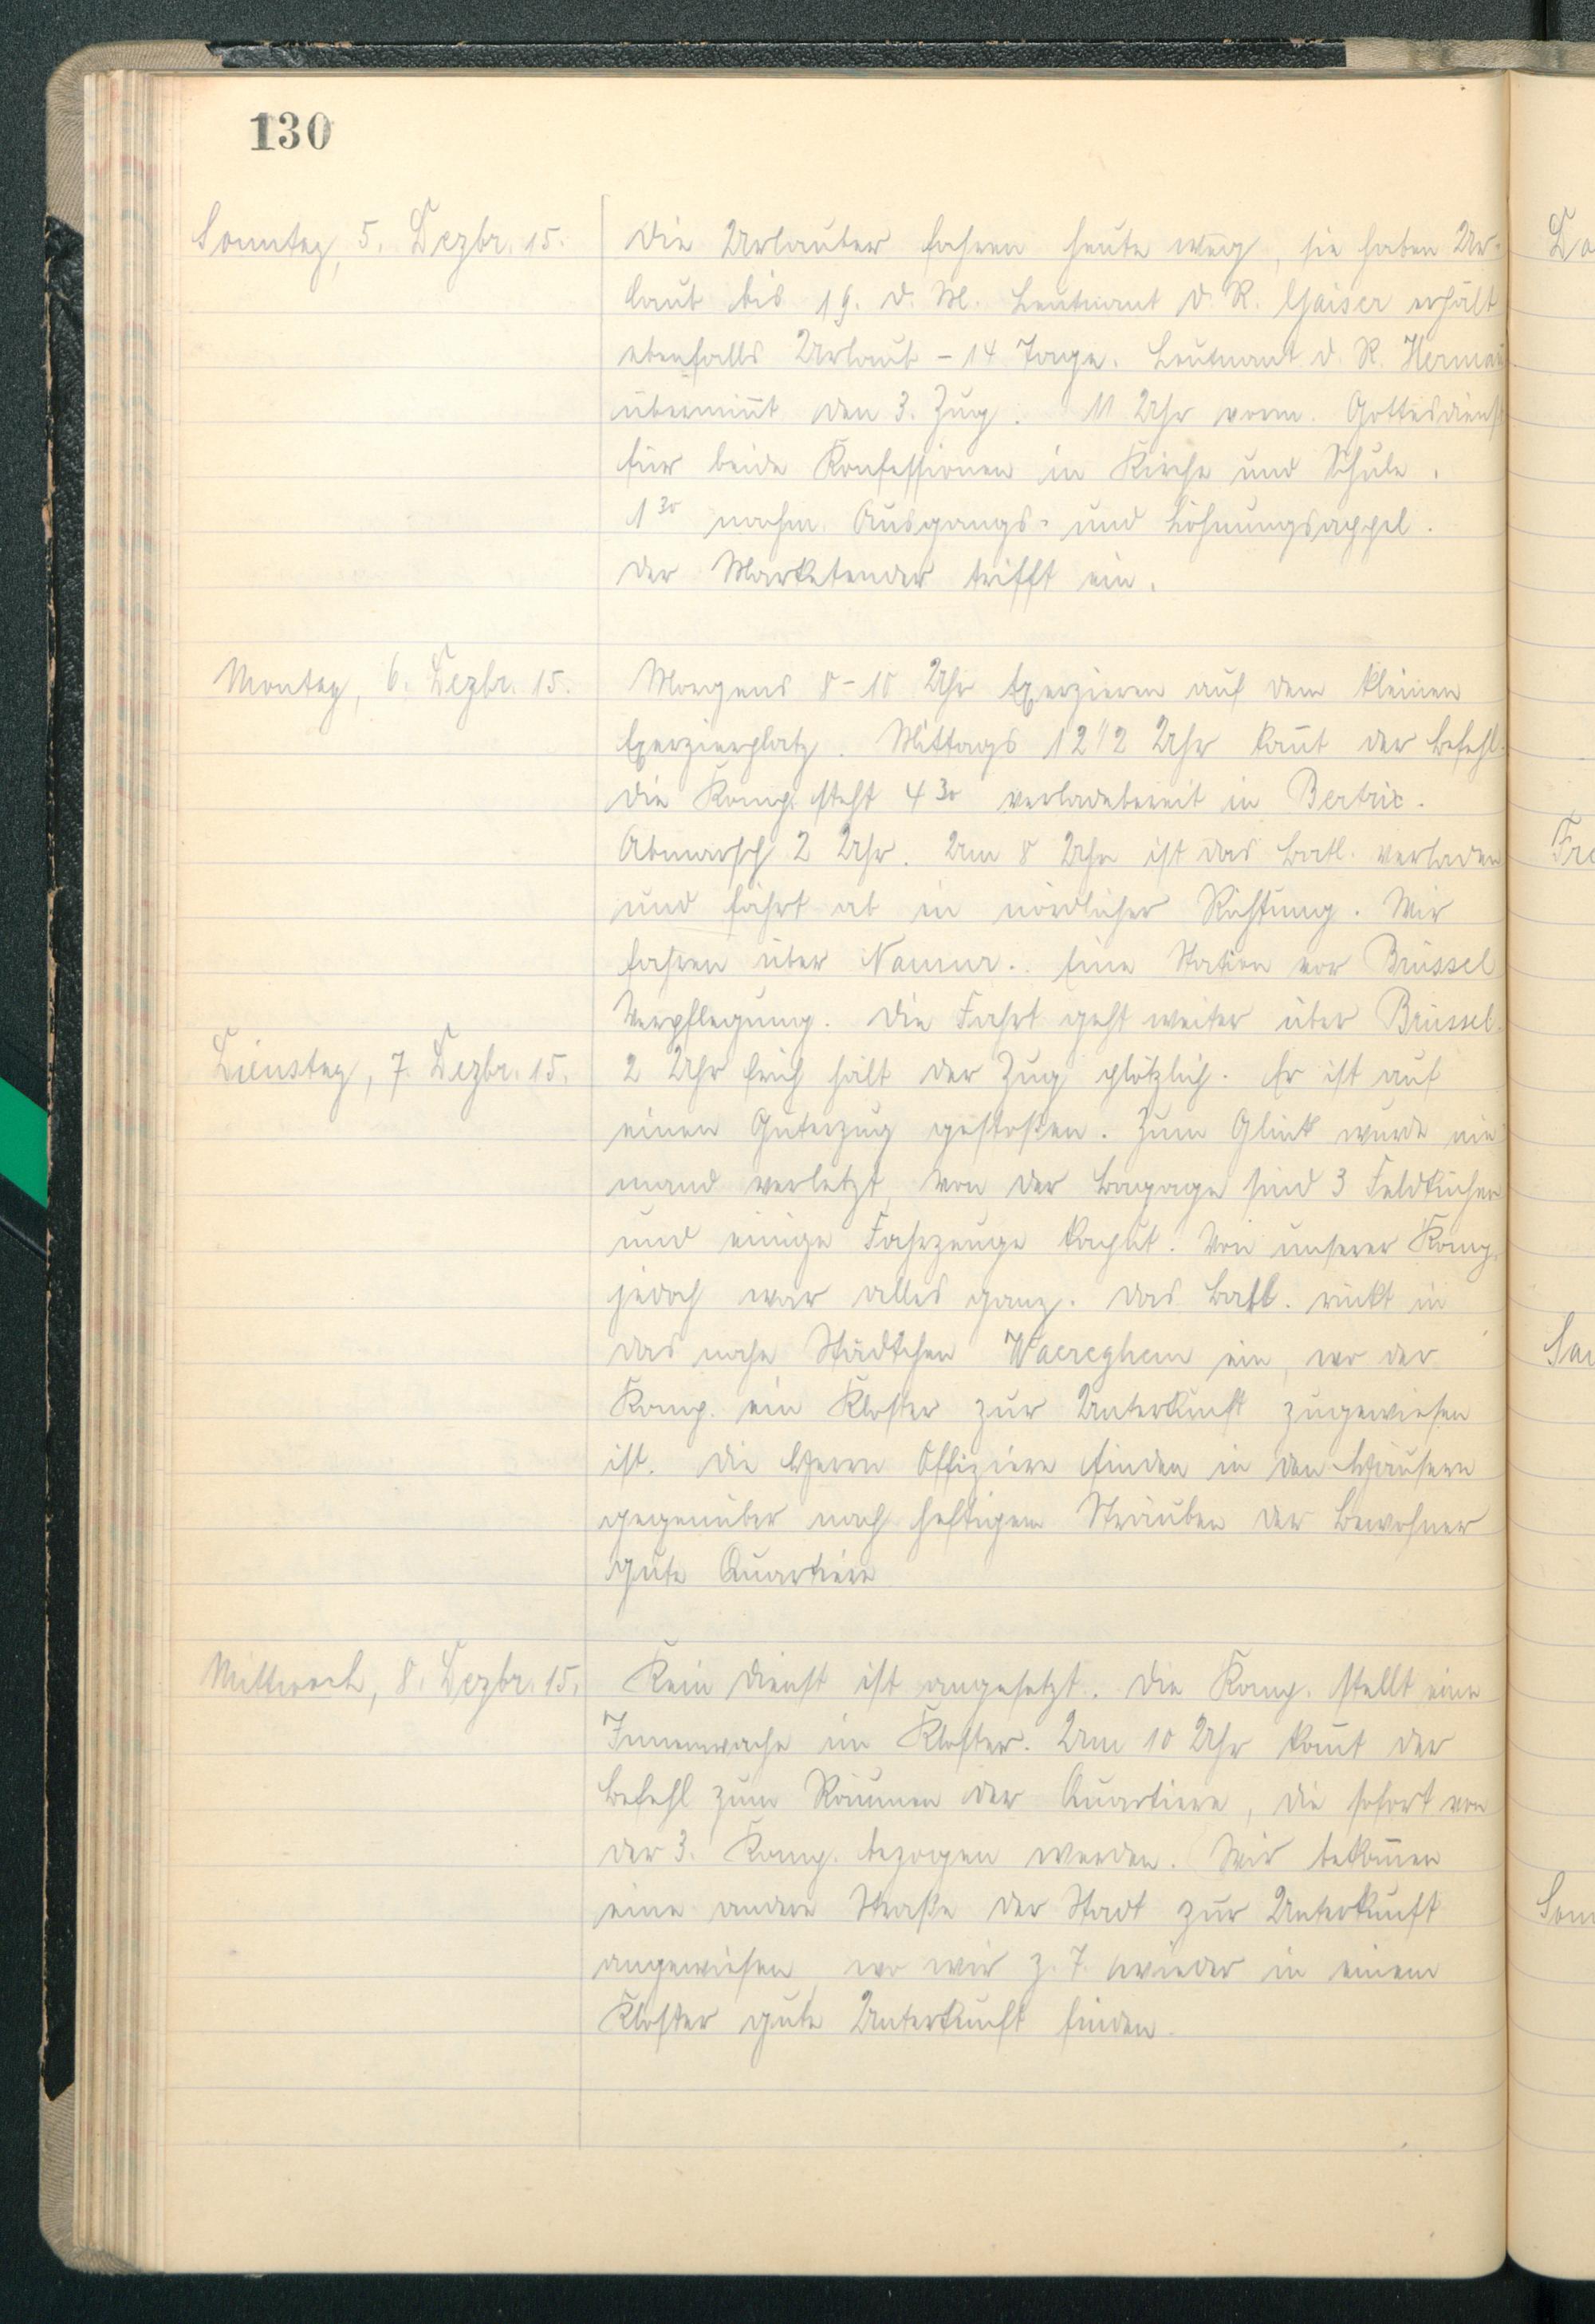 130
Sonntag, 5. Dezbr. 15.
Die Urlauber fahren heute weg, sie haben Ur-
laub bis 19. d. M. Leutnant d. R. Gaiser erhält
ebenfalls Urlaub - 14 Tage. Leutnant d. R. Herman
übernim̅t den 3. Zug. 11 Uhr vorm. Gottesdienst
für beide Konfessionen in Kirche und Schule.
1³⁰ nachm. Ausgangs- und Löhnungsappel.
Der Marketender trifft ein.
Montag, 6. Dezbr. 15.
Morgens 8-10 Uhr Exerzieren auf dem kleinen
Exerzierplatz. Mittags 12 1/2 Uhr kom̅t der Befehl:
Die Komp. steht 4³⁰ verladebereit in Bertrix.
Abmarsch 2 Uhr. Um 8 Uhr ist das Batl. verladen
und fährt ab in nördlicher Richtung. Wir
fahren über Namur. Eine Station vor Brüssel
Verpflegung. Die Fahrt geht weiter über Brüssel.
Dienstag, 7. Dezbr. 15.
2 Uhr früh hält der Zug plötzlich. Er ist auf
einen Güterzug gestoßen. Zum Glück wurde nie
mand verletzt, von der Bagage sind 3 Feldküchen
und einige Fahrzeuge kaput. Von unserer Komp.
jedoch war alles ganz. Das Batl. rückt in
das nahe Städtchen Waereghem ein, wo der
Komp. ein Kloster zur Unterkunft zugewiesen
ist. Die Herrn Offiziere finden in den Häusern
gegenüber nach heftigem Sträuben der Bewohner
gute Quartiere
Mittwoch, 8. Dezbr. 15.
Kein Dienst ist angesetzt. Die Komp. stellt eine
Innenwache im Kloster. Um 10 Uhr kom̅t der
Befehl zum Räumen der Quartiere, die sofort von
der 3. Komp. bezogen werden. Wir bekom̅en
eine andere Straße der Stadt zur Unterkunft
angewiesen, wo wir z. T. wieder in einem
Kloster gute Unterkunft finden.